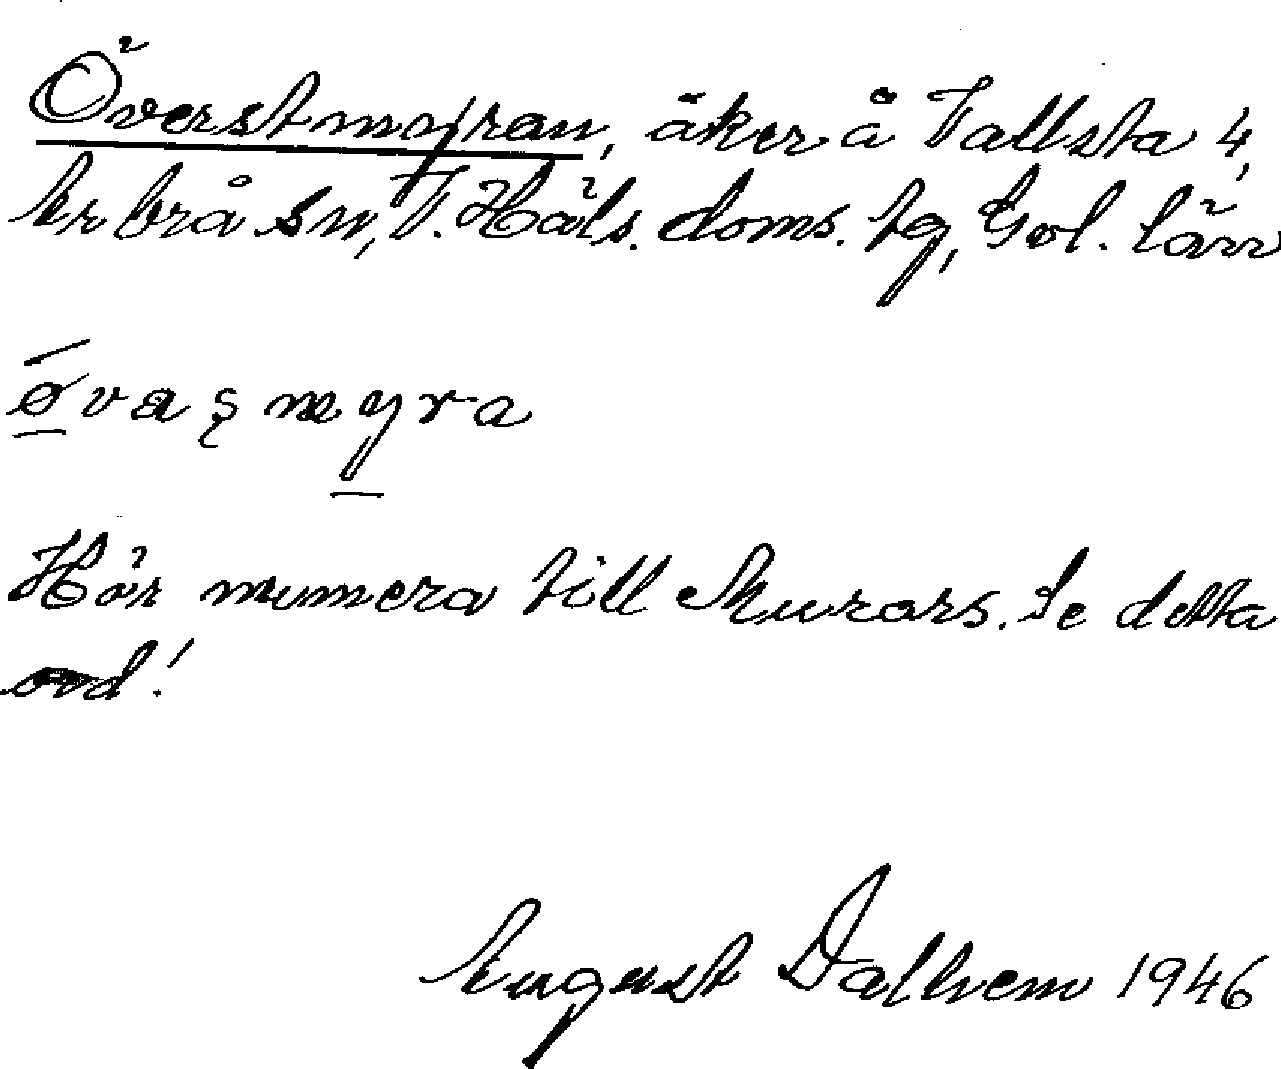 Överstmojran, åker å Vallsta 4,
Arbrå sn, V. Häls. doms. tg, Gvl. län
øvaşmyra
Hör numera till Murars. Se detta
ord!
August Dalhem 1946